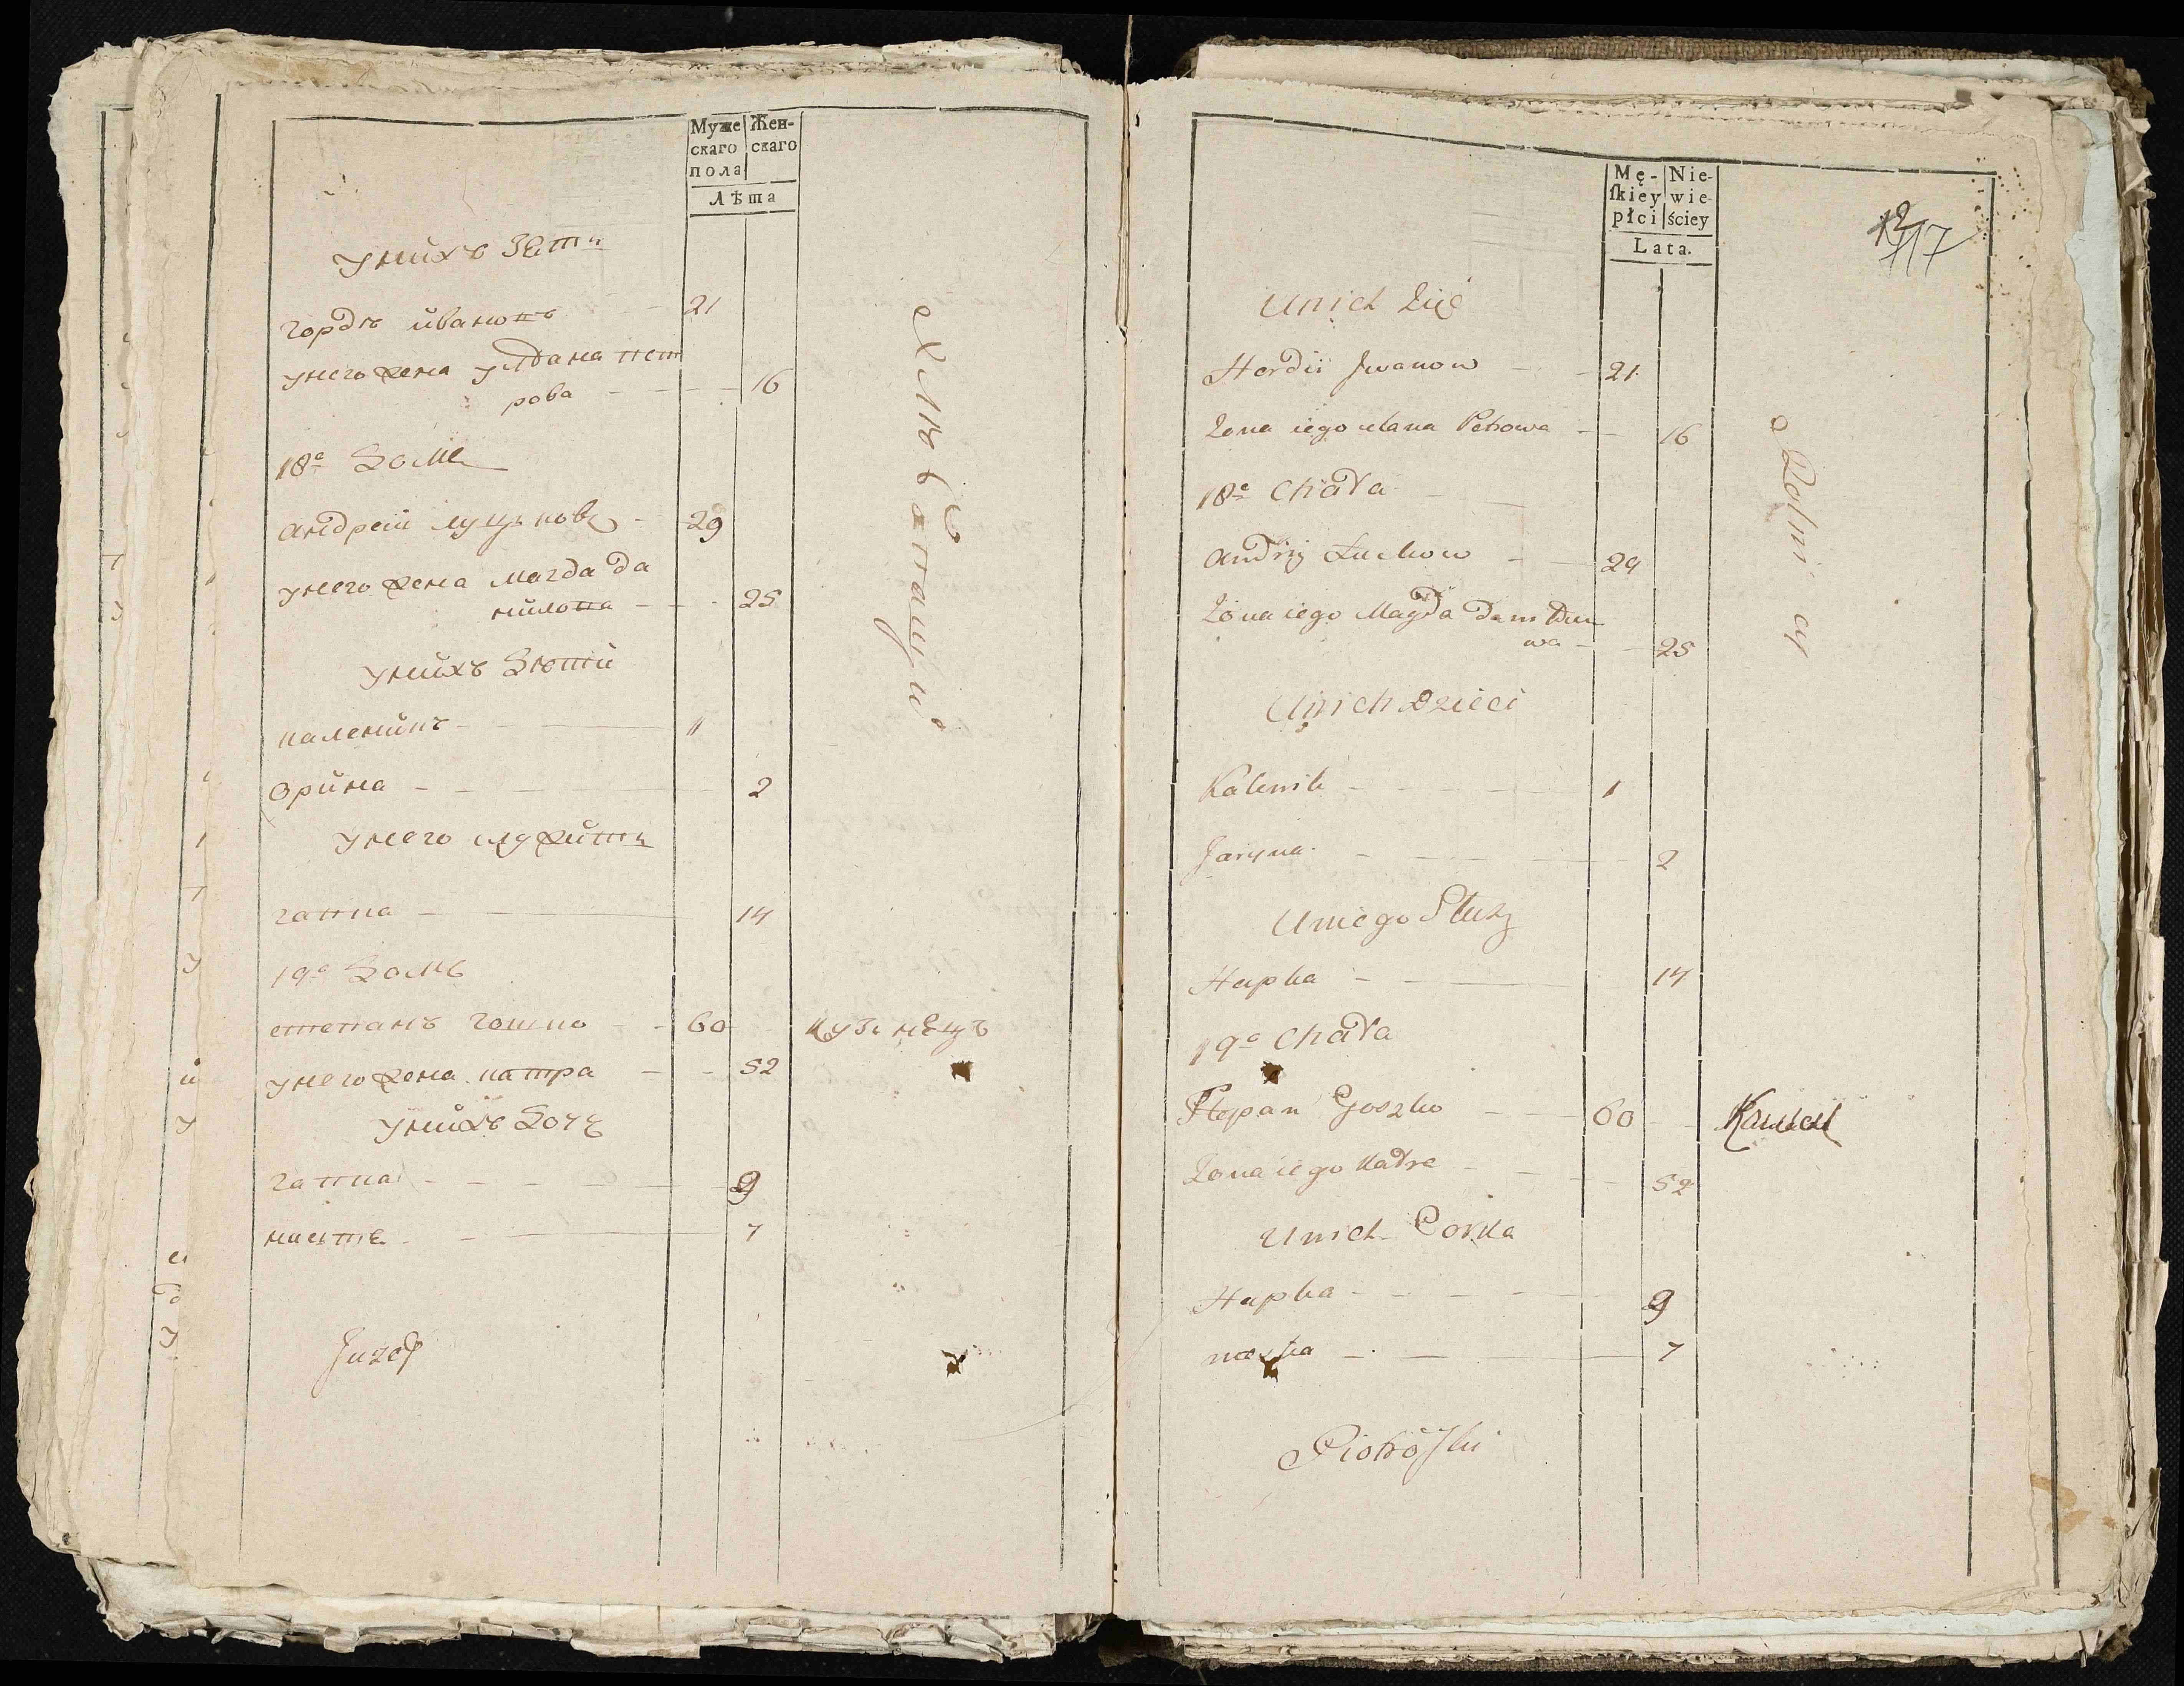 Муже
скаго
пола
Жен-
скаго
Лѣта
унихъ Зети
гордѣ ивановъ 21
унего жена улдана пет
рова 16
18е Домъ
андрей луцковъ 29
унего жена магда да
нилова 25
унихъ Дѣти
каленикъ 1
Орина 2
унего служити
гапка 14
19е Домъ
степанъ гошко 60 кузнецъ
унего жена катра 52
унихъ Дочь
гапка 9
настя 7
Juzef
хлебопашци
Mę-
ſkiey
płci
Nie-
wie-
ściey
Lata.
12
117
Unich Zięć
Hordii Jwanow 21
Zona iego ulana Petrowa 16
18e Chata
Andrij Luckow 29
Zona iego Magda
wa 25
Unich Dzieci
Kalenik 1
Jaryna 2
Uniego Służ
Hapka 14
19e Chata
Stepan Goszko 60 Kawal
Zona iego Katra 52
Unich Corka
Hapka 9
nastia 7
Piotroſki
Rolnicy